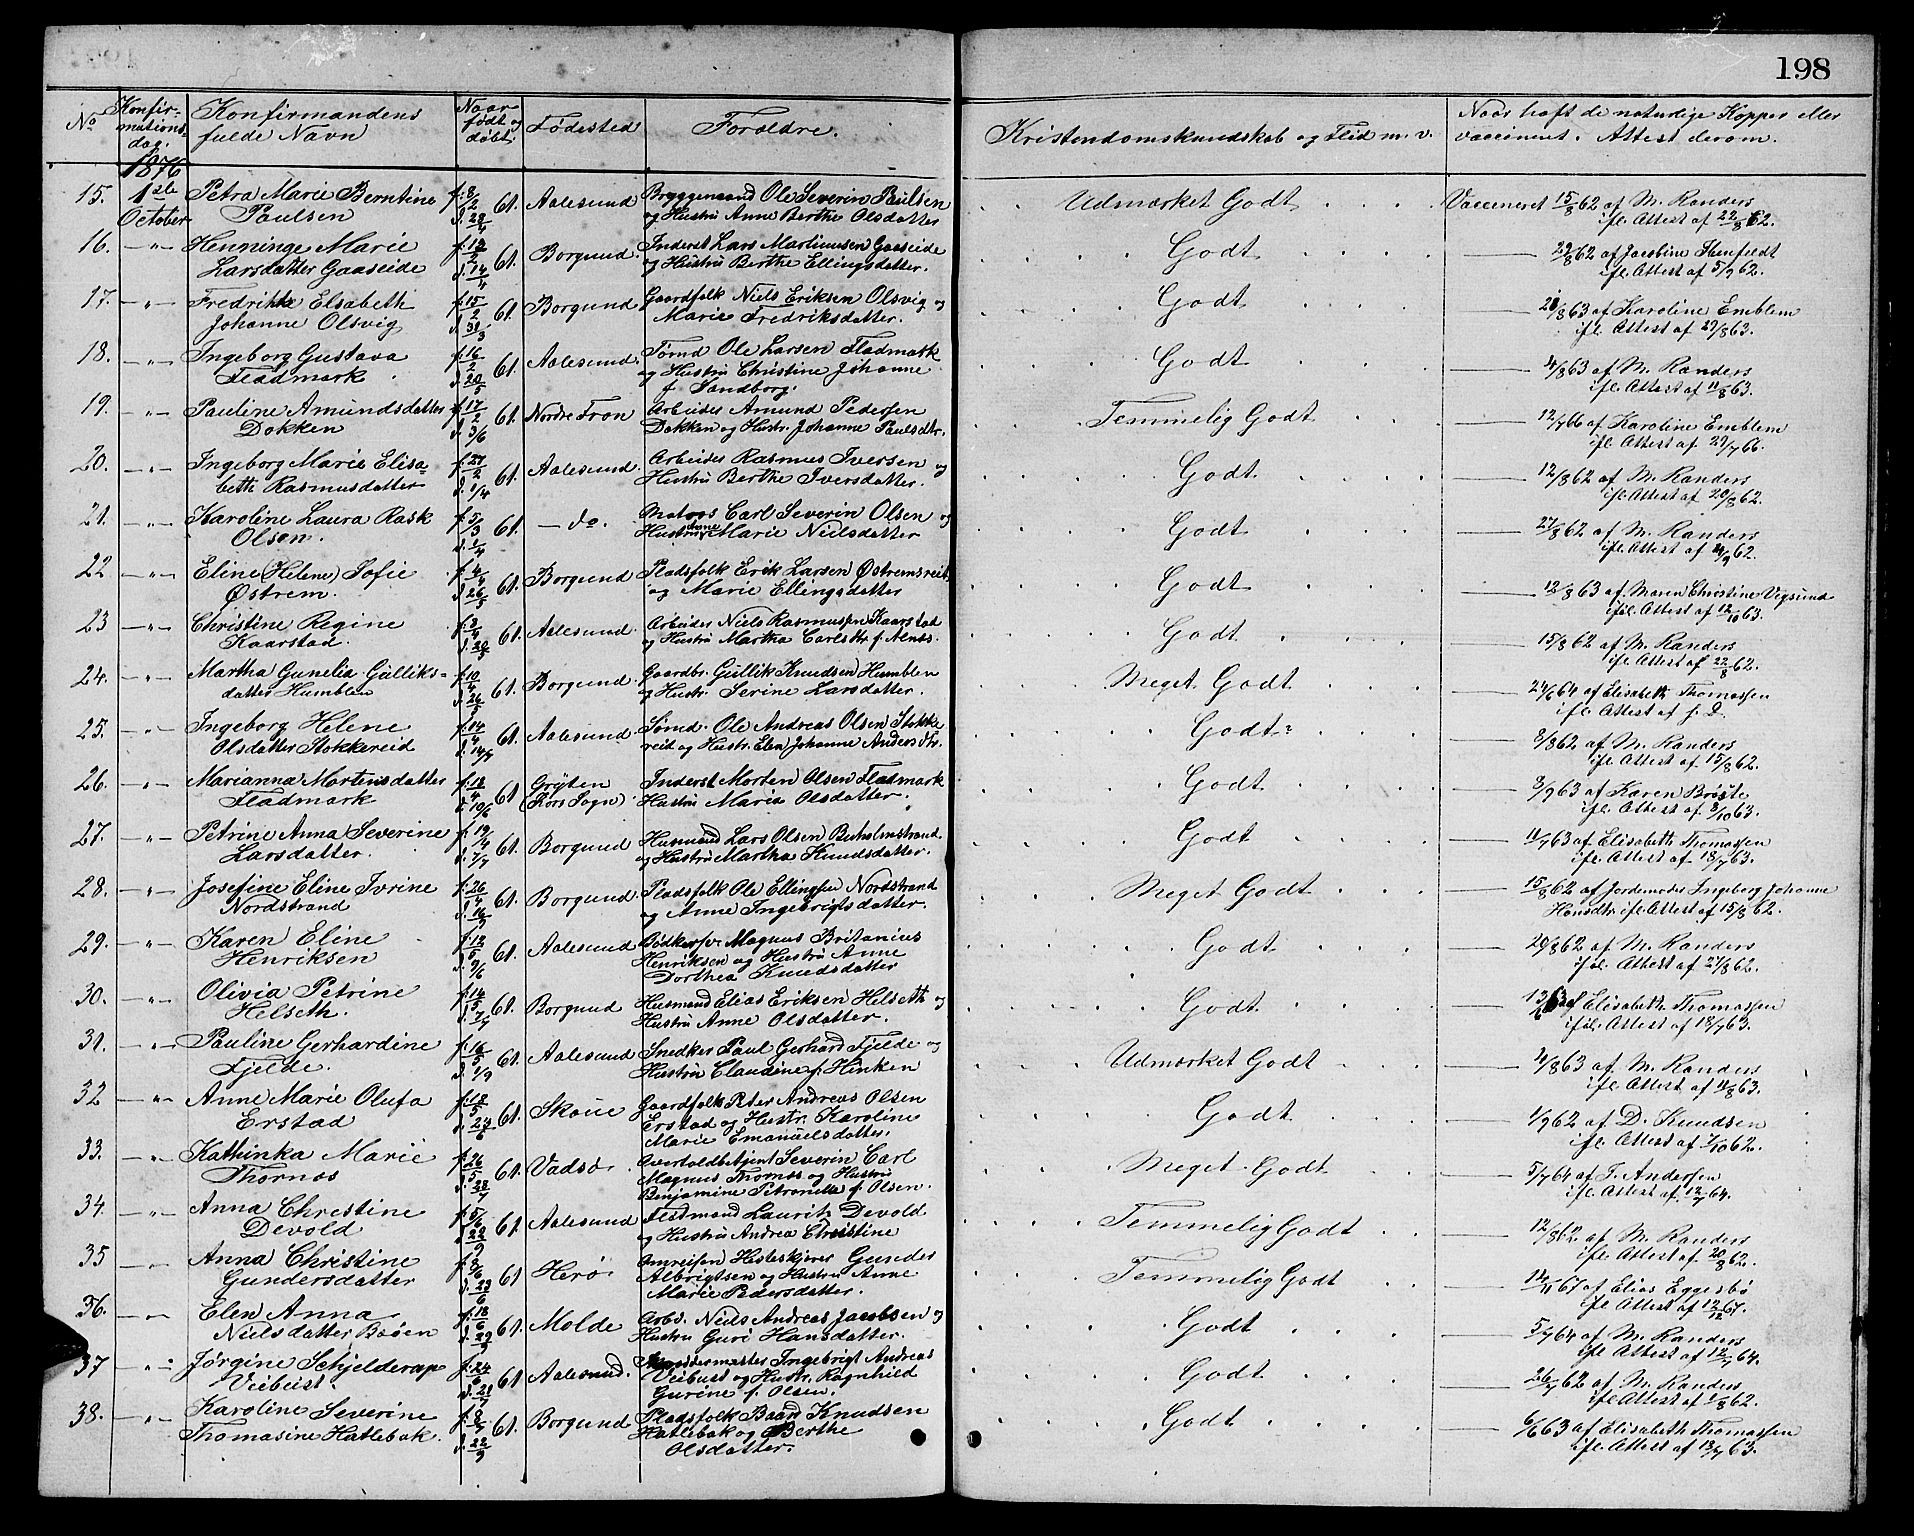 198
No
Konfir-
mations-
dag.
Konfirmandens
fulde Navn
Naar
født og
døbt
Fødested
Forældre.
Kristendomskundskab og Flid m. v.
Naar haft de naturlige Kopper eller
vaccineret. Attest derom.
1876
15. 1ste Petra Marie Berntine f. 8/2 61. Aalesund Bryggemand Ole Severin Paulsen Udmærket Godt Vaccineret 15/8 62 af M. Randers
October Paulsen d. 28/4 og Hustru Anne Berthe Olsdatter ifl. Attest af 22/8 62.
16. -"- Henninge Marie f. 12/2 61. Borgund. Inderst Lars Martinusen Gaaseide Godt 22/8 62 af Jacobine Stenfeldt
Larsdatter Gaaseide d. 14/4 og Hustru Berthe Ellingsdatter. ifl. Attest af 5/9 62.
17. -"- Fredrikke Elsabeth f. 15/2 61. Borgund Gaardfolk Niels Eriksen Olsvig og Godt /8 63 af Karoline Emblem
Johanne Olsvig d. 31/3 Marie Fredriksdatter. ifl. Attest af 29/8 63.
18. -"- Ingeborg Gustava f. 16/2 61. Aalesund. Tømd Ole Larsen Fladmark Godt 4/8 63 af M. Randers
Fladmark d. 20/5 og Hustru Christine Johanne ifl. Attest af 11/8 63.
f. Sandborg.
19. -"- Pauline Amundsdatter f. 17/2 61. Nordre Fron Arbeider Amund Pedersen Temmelig Godt 12/7 66 af Karoline Emblem
Dokken d. 3/6 Dokken og Hustr. Johanne Paulsdtr. ifl. Attest af 29/7 66.
20. -"- Ingeborg Marie Elisa- f. 27/2 61. Aalesund. Arbeider Rasmus Iversen og Godt 12/8 62 af M. Randers
beth Rasmusdatter d. 1/4 Hustru Berthe Iversdatter. ifl. Attest af 20/8 62.
21. -"- Karoline Laura Rask f. 5/3 61. -do. Matros Carl Severin Olsen og Godt 27/8 62 af M. Randers
Olsen. d. 1/4 Hustru Anne Marie Nielsdatter ifl. Attest af 24/9 62.
22 -"- Eline (Helene) Sofie f. 4/4 61. Borgund Pladsfolk Erik Larsen Østremsreit Godt 12/8 63 af Maren Christine Vegsund
Østrem. d. 26/5 og Marie Ellingsdatter ifl. Attest af 12/10 63.
23 -"- Christine Regine f. 2/4 61. Aalesund. Arbeider Niels Rasmussen Kaarstad Godt 15/8 62 af M. Randers
Kaarstad. d. 20/5 og Hustru Martha Carlsdtr f. Alnæs. ifl. Attest af 22/8 62.
24. -"- Martha Gunelia Gulliks- f. 10/4 61. Borgund. Gaardbr. Gullik Knudsen Humblen Meget Godt 24/6 64 af Elisabeth Thomassen
datter Humblen d. 26/5 og Hustr. Serine Larsdatter. ifl. Attest af s. D.
25. -"- Ingeborg Helene f. 14/4 61. Aalesund. Tømd. Ole Andreas Olsen Stokke Godt 8/8 62 af M. Randers
Olsdatter Stokkereid d. 14/7 reid og Hustr. Elen Johanne Anders Dtr. ifl. Attest af 15/8 62.
26. -"- Marianna Mortensdatter f. 18/4 61 Grytten Inderst Morten Olsen Fladmark Godt 3/9 63 af Karen Brøste
Fladmark d. 10/6 (Kors Sogn). Hustru Maria Olsdatter. ifl. Attest af 3/10 63.
27. -"- Petrine Anna Severine f. 19/4 61. Borgund Husmand Lars Olsen Buholmstrand. Godt 11/7 63 af Elisabeth Thomassen
Larsdatter. d. 7/7 og Hustru Martha Knudsdatter. ifl. Attest af 18/7 63.
28. -"- Josefine Eline Ivrine f. 26/4 61. Borgund Pladsfolk Ole Ellingsen Nordstrand Meget Godt 15/8 62 af Jordemoder Ingeborg Johanne
Nordstrand d. 16/9 og Anne Ingebrigtsdatter. Hansdtr. ifl. Attest af 15/8 62.
29. -"- Karen Eline f. 12/5 61. Aalesund Bødkersv. Magnus Britanius Godt 20/8 62 af M. Randers
Henriksen d. 9/6 Henriksen og Hustru Anne ifl. Attest af 27/8 62.
Dorthea Knudsdatter
30. -"- Olivia Petrine f. 14/5 61. Borgund Husmand Elias Eriksen Helseth og Godt af Elisabeth Thomassen
Helseth. d. 7/7 Hustru Anne Olsdatter. ifl. Attest af 18/7 63.
31. -"- Pauline Gerhardine f. 16/5 61. Aalesund Snedker Paul Gerhard Fjelde og Udmærket Godt 4/8 63 af M. Randers
Fjelde. d. 1/9 Hustru Claudine f. Hinken ifl. Attest af 11/8 63.
32 -"- Anne Marie Olufa f. 18/5 61. Skoue Gaardfolk Peter Andreas Olsen Godt 1/9 62 af D. Knudsen
Erstad d. 23/6 Erstad og Hustr. Karoline ifl. Attest af 1/10 62.
Marie Emanuelsdatter.
33. -"- Kathinka Marie f. 26/5 61. Vadsø. Overtoldbetjent Severin Carl Meget Godt 5/7 64 af T. Andersen
Thornæs d. 28/7 Magnus Thornæs og Hustru ifl. Attest af 12/7 64.
Benjamine Petronelle f. Olsen.
34. -"- Anna Christine f. 5/6 61 Aalesund Flødmand Laurits Devold Temmelig Godt 12/8 62 af M. Randers
Devold d. 22/9 og Hustru Andrea Christine ifl. Attest af 20/8 62.
35 -"- Anna Christine f. 8/6 61 Herø Omreisen Hesteskjærer Gunder Temmelig Godt 14/11 67 af Elias Eggesbø
Gundersdatter d. 23/6 Albrigtsen og Hustru Anne ifl. Attest af 12/12 67.
Marie Pedersdatter.
36. -"- Elen Anna f. 18/6 61. Molde Arbd. Niels Andreas Jacobsen og Godt 5/7 64 af M. Randers
Nielsdatter Bøen d. 29/9 Hustru Guro Hansdatter. ifl. Attest af 12/7 64.
37 -"- Jørgine Schjelderup f. 24/6 61 Aalesund. Ingebrigt Andreas Godt 26/7 62 af M. Randers
Veibust. d. 28/7 Veibust og Hustr. Ragnhild ifl. Attest af 1/8 62.
Gurine f. Olsen.
38. -"- Karoline Severine f. 8/7 61. Borgund Pladsfolk Baard Knudsen Godt 6/6 63 af Elisabeth Thomassen
Thomasine Hatlebak. d. 22/9 Hatlebak og Berthe ifl. Attest af 13/7 63.
Olsdatter.